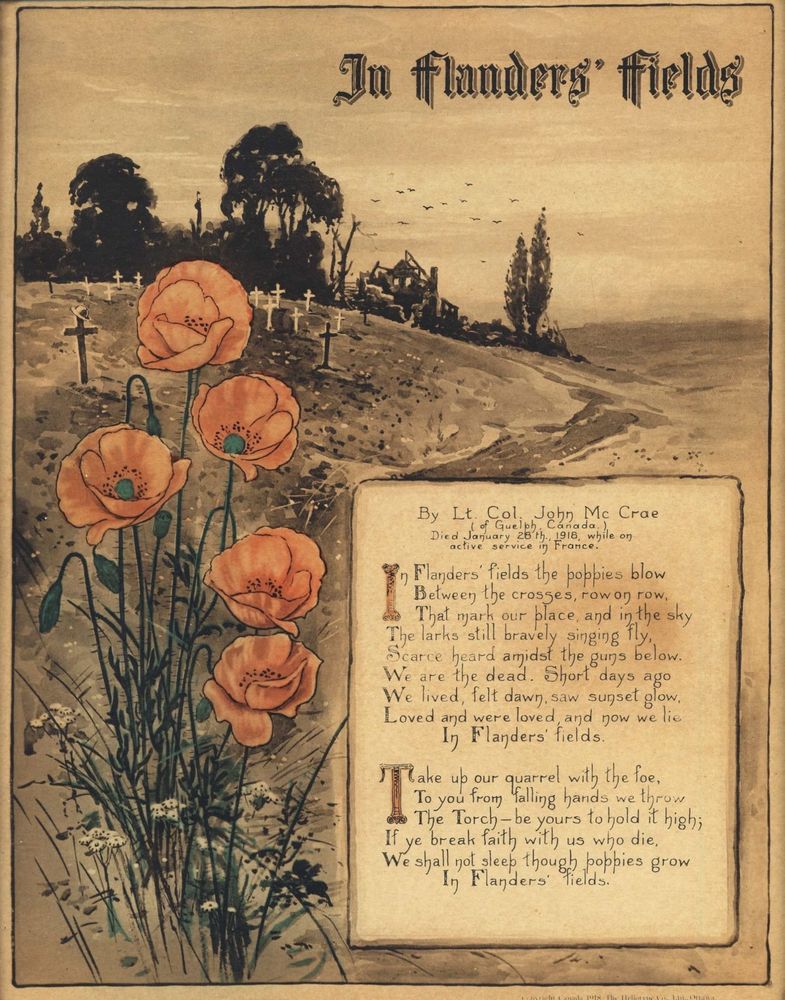 In Flanders' Fields
By Lt. Col. John Mc Crae
(of Guelph, Canada.)
Died January 28th., 1918, while on
active service in France.
In Flanders' fields the poppies blow
Between the crosses, row on row,
That mark our place, and in the sky
The larks still bravely singing fly,
Scarce heard amidst the guns below.
We are the dead. Short days ago
We lived, felt dawn, saw sunset glow,
Loved and were loved, and now we lie
In Flanders' fields.
Take up our quarrel with the foe,
To you from falling hands we throw
The Torch – be yours to hold it high;
If ye break faith with us who die,
We shall not sleep though poppies grow
In Flanders' fields.
Copyright Canada 1918 The Heliotype Co., Ltd., Ottawa